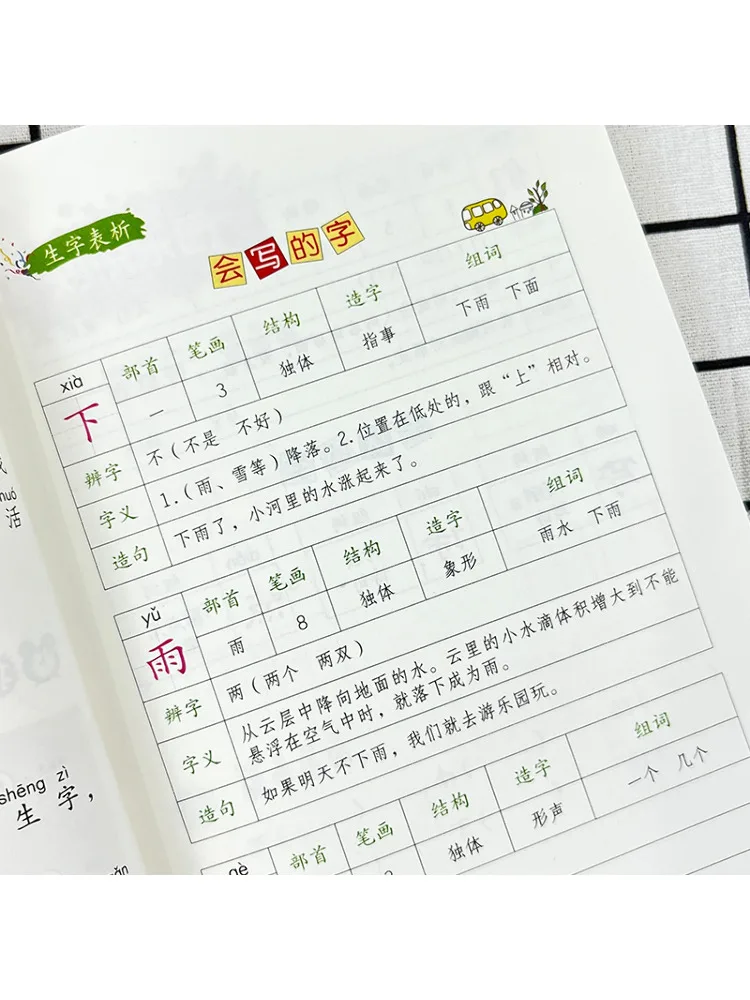 生字表析
会写的字
xià 部首 笔画 结构 造字 组词
下 一 3 独体 指事 下雨 下面
辨字 不(不是 不好)
字义 1.(雨、雪等)降落。2.位置在低处的,跟“上”相对。
造句 下雨了,小河里的水涨起来了。
yǔ 部首 笔画 结构 造字 组词
雨 雨 8 独体 象形 雨水 下雨
辨字 两(两个 两双)
字义 从云层中降向地面的水。云里的小水滴体积增大到不能
悬浮在空气中时,就落下成为雨。
造句 如果明天不下雨,我们就去游乐园玩。
gè 部首 笔画 结构 造字 组词
独体 形声 一个 几个
活
shēng zì
生字,